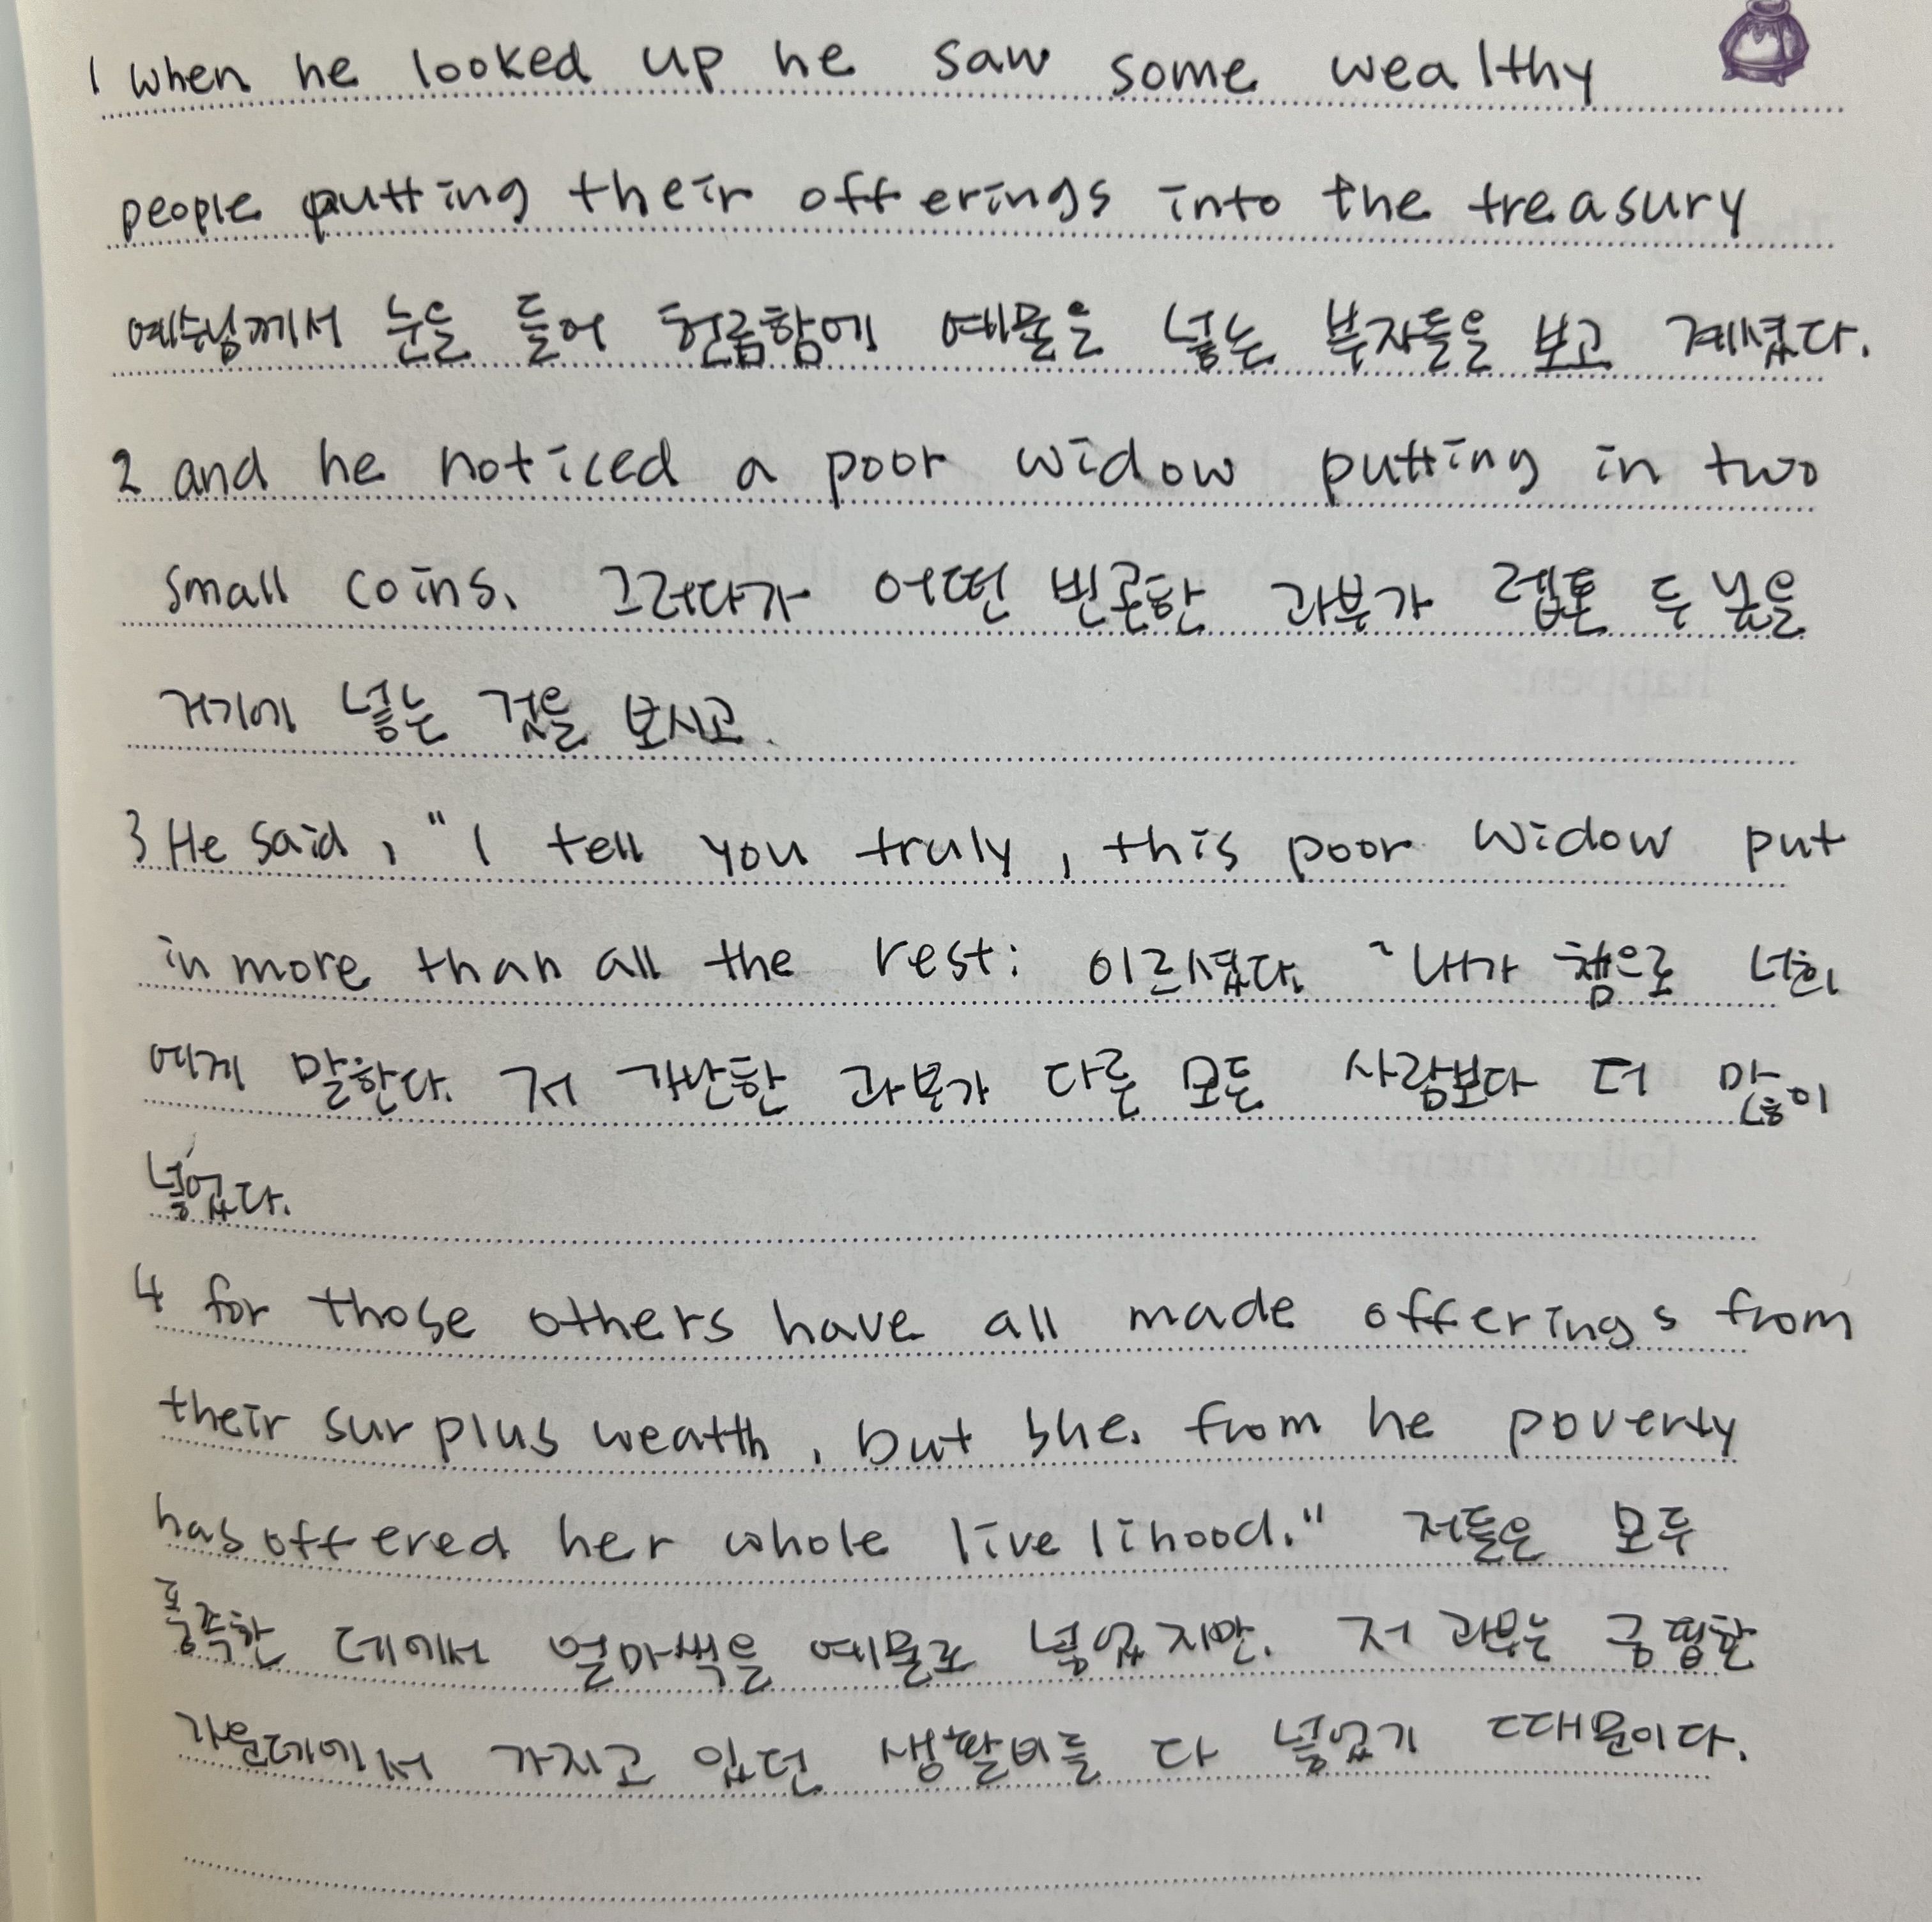 1 when he looked up he saw some wealthy
people putting their offerings into the treasury
예수님께서 눈을 들어 헌금함에 예물을 넣는 부자들을 보고 계셨다.
2 and he noticed a poor widow putting in two
small coins. 그러다가 어떤 빈곤한 과부가 렙톤 두 닢을
거기에 넣는 것을 보시고.
3 He said, "I tell you truly, this poor widow put
in more than all the rest; 이르셨다. "내가 참으로 너희
에게 말한다. 저 가난한 과부가 다른 모든 사람보다 더 많이
넣었다.
4 for those others have all made offerings from
their surplus wealth, but she, from he poverty
has offered her whole livelihood." 저들은 모두
풍족한 데에서 얼마씩을 예물로 넣었지만. 저 과부는 궁핍한
가운데에서 가지고 있던 생활비를 다 넣었기 때문이다.